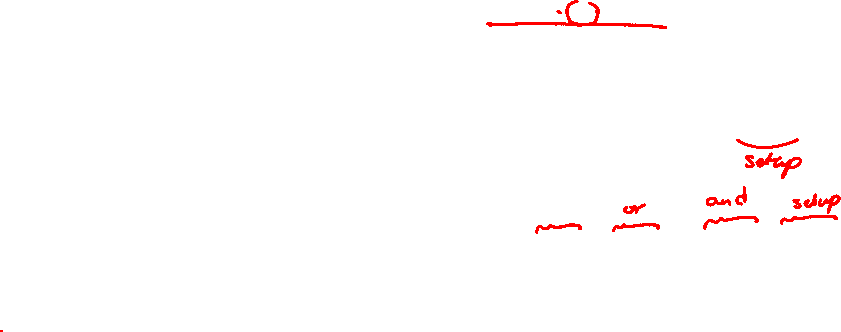 setup
or and setup